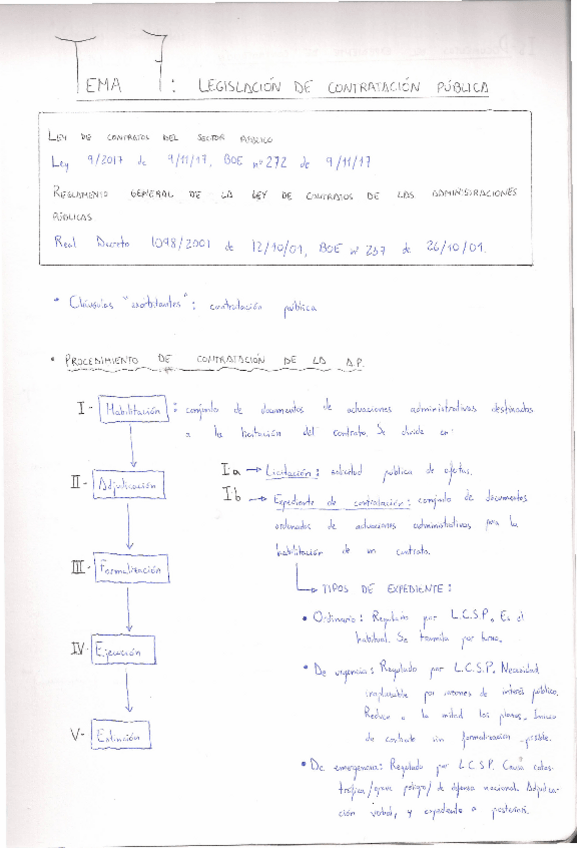 TEMA 7: LEGISLACIÓN DE CONTRATACIÓN PÚBLICA
LEY DE CONTRATOS DEL SECTOR PÚBLICO
Ley 9/2017 de 9/11/17, BOE nº 272 de 9/11/17
REGLAMENTO GENERAL DE LA LEY DE CONTRATOS DE LAS ADMINISTRACIONES
PÚBLICAS
Real Decreto 1098/2001 de 12/10/01, BOE nº 257 de 26/10/01.
• Cláusulas "exorbitantes": contratación pública
• PROCEDIMIENTO DE CONTRATACIÓN DE LA A.P.
I- Habilitación: conjunto de documentos de actuaciones administrativas destinados
a la licitación del contrato. Se divide en:
II- Adjudicación
Ia → Licitación: solicitud pública de ofertas.
Ib → Expediente de contratación: conjunto de documentos
ordenados de actuaciones administrativas para la
habilitación de un contrato.
III- Formalización
TIPOS DE EXPEDIENTE:
• Ordinario: Regulado por L.C.S.P. Es el
habitual. Se tramita por
IV- Ejecución
• De urgencia: Regulado por L.C.S.P. Necesidad
inaplazable por razones de interés público.
Reduce a la mitad los plazos. Inicio
de contrato sin formalización posible.
V- Extinción
• De emergencia: Regulado por L.C.S.P. Causa catas-
trófica/grave peligro/de defensa nacional. Adjudica-
ción verbal, y expediente a posteriori.